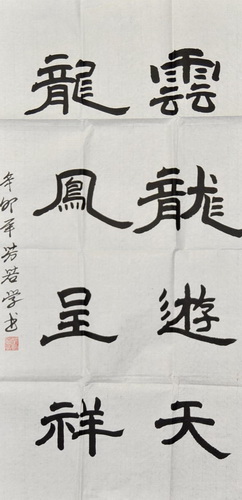 雲龍遊天
龍鳳呈祥
辛卯年 若学书